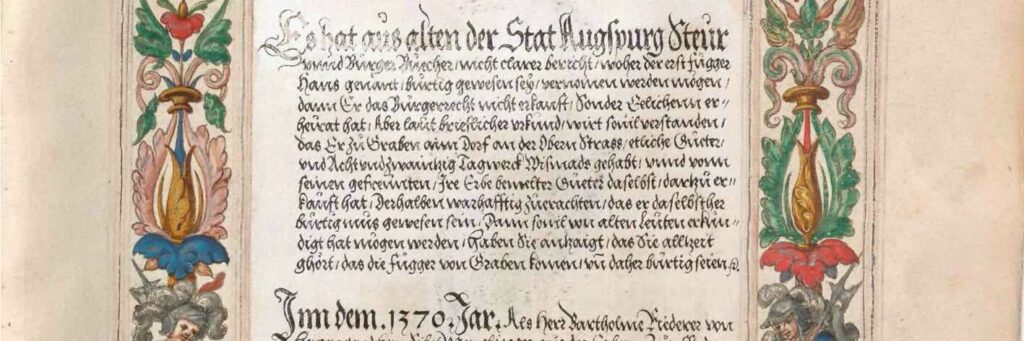 Es hat aus alten der Stat Augspurg Steur
vnnd Burger Buecher / nicht clarer bericht / woher der erst Fugger
Hans genant / bürtig gewesen sey / vernomen werden mögen /
dann Er das Burgerrecht nicht erkaufft / Sonder Eelichenn er=
heurat hat / Aber laut brieflicher vrkund / wirt souil verstanden /
das Er zu Graben aim Dorf an der Obern Strass / etliche Güeter /
vnd Acht vnd zwaintzig Tagwerck Wismads gehabt / vnnd vonn
seinen gefreünten / Jre Erbe bemelter Güeter daselbst / dartzü er=
kaufft hat / Derhalben warhafftig zuerachten / das er daselbsther
bürtig müs gewesen sein / Dann souil von alten Leüten erkün=
digt hat mögen werden / haben Sie antzaigt / das Sie alltzeit
ghört / das die Fugger von Graben komen / vn̄ daher bürtig seien
Jnn dem .1370. Jar. Als Herr Bartholme Riederer von